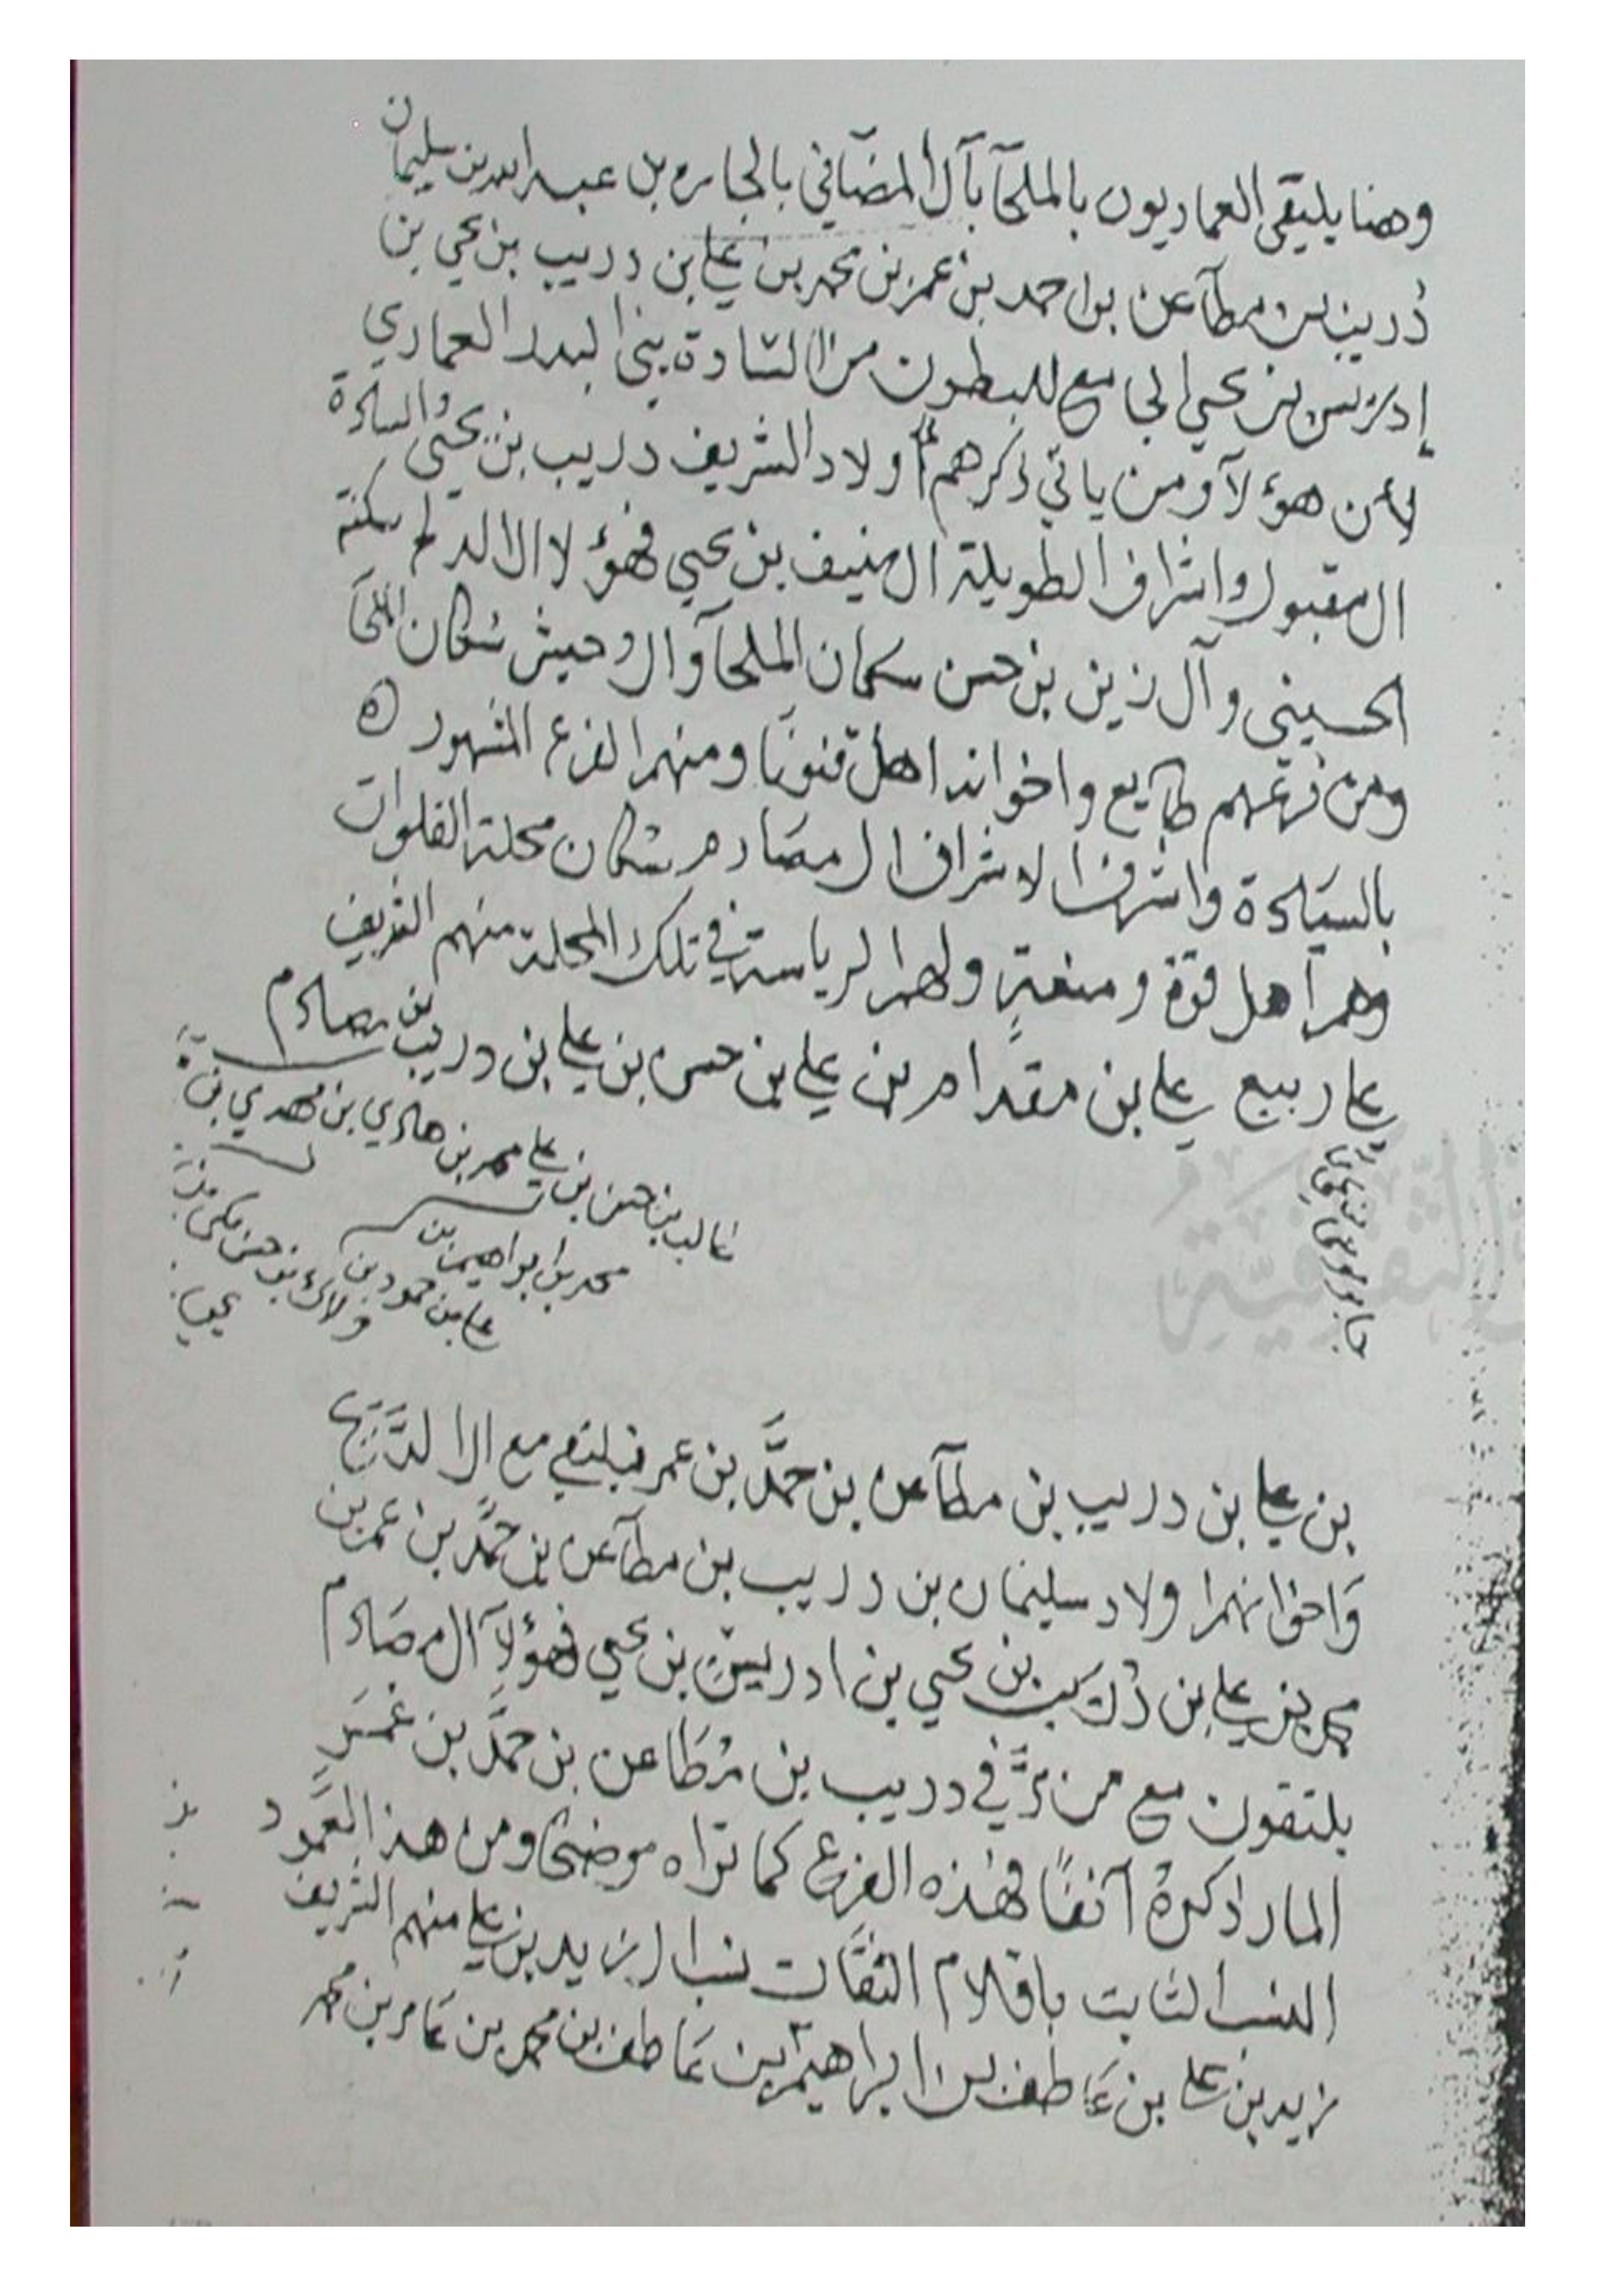 وهنا يلتقي العماريون بالملحآ بآل المضافي بالجاره بن عبد الله بن سليمان
دريب بن مطآعن بن احمد بن عمر بن محمد بن علي بن دريب بن يحي بن
إدريس بن يحيى الجامع للبطون من السادة بني العماري
من هؤلآ ومن ياتي ذكرهم أولاد الشريف دريب بن يحيى والسادة
ال مقبول واشراف الطويلة ال منيف بن يحيى فهؤلا
الحسيني وآل زين بن حسن سكان الملحآ وال وحيش سكان الملحآ
ومن فرعهم طايع واخوانه اهل قنونا ومنهم الفرع المشهور
بالسيادة واشرفها الاشراف ال مصادم سكان محلة الفلوات
وهم اهل قوة ومنعةٍ ولهم الرياسة في تلك المحلة منهم الشريف
علي ربيع علي بن مقدام بن علي بن حسن بن علي بن دريب بن مصادم
محمد بن هادي بن مهدي بن
غالب بن حسن بن علي
محمد بن ابراهيم بن
علي بن حمود بن
ولادي بن حسن بن
يحيى
بن علي بن دريب بن مطآعن بن حمَّد بن عمر فيلتقي مع ال
وَاخوانهم اولاد سليمان بن دريب بن مطآعن بن حمَّد بن عمر بن
محمد بن علي بن دُريب بن يحيى بن ادريس بن يحيى فهؤلآ ال مصَادم
يلتقون مع من مرَّ في دريب بن مُطَاعن بن حمَّد بن عُمَر
المار ذكرهُ آنفًا فهذه الفرع كما تراه موضحًا ومن هذ العمود
النسب الثابت باقلام الثقَات نسب ال زيد بن علي منهم الشريف
زيد بن علي بن عَاطف بن ابراهيم بن عَاطف بن محمد بن عَامر بن محمد